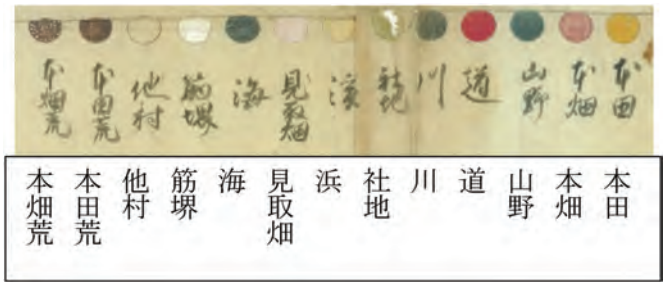 本田
本畑
山野
道
川
社地
浜
見取畑
海
筋堺
他村
本田荒
本畑荒
本田
本畑
山野
道
川
社地
浜
見取畑
海
筋堺
他村
本田荒
本畑荒